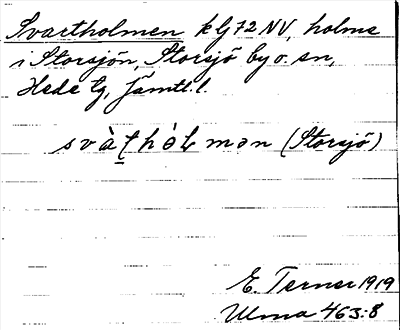 Svartholmen klj 72 NV, holme
i Storsjön, Storsjö by o. sn,
Hede tg, Jämtl. l.
svàt̠hòɫmən (Storsjö)
E. Terner 1919
Ulma 463:8